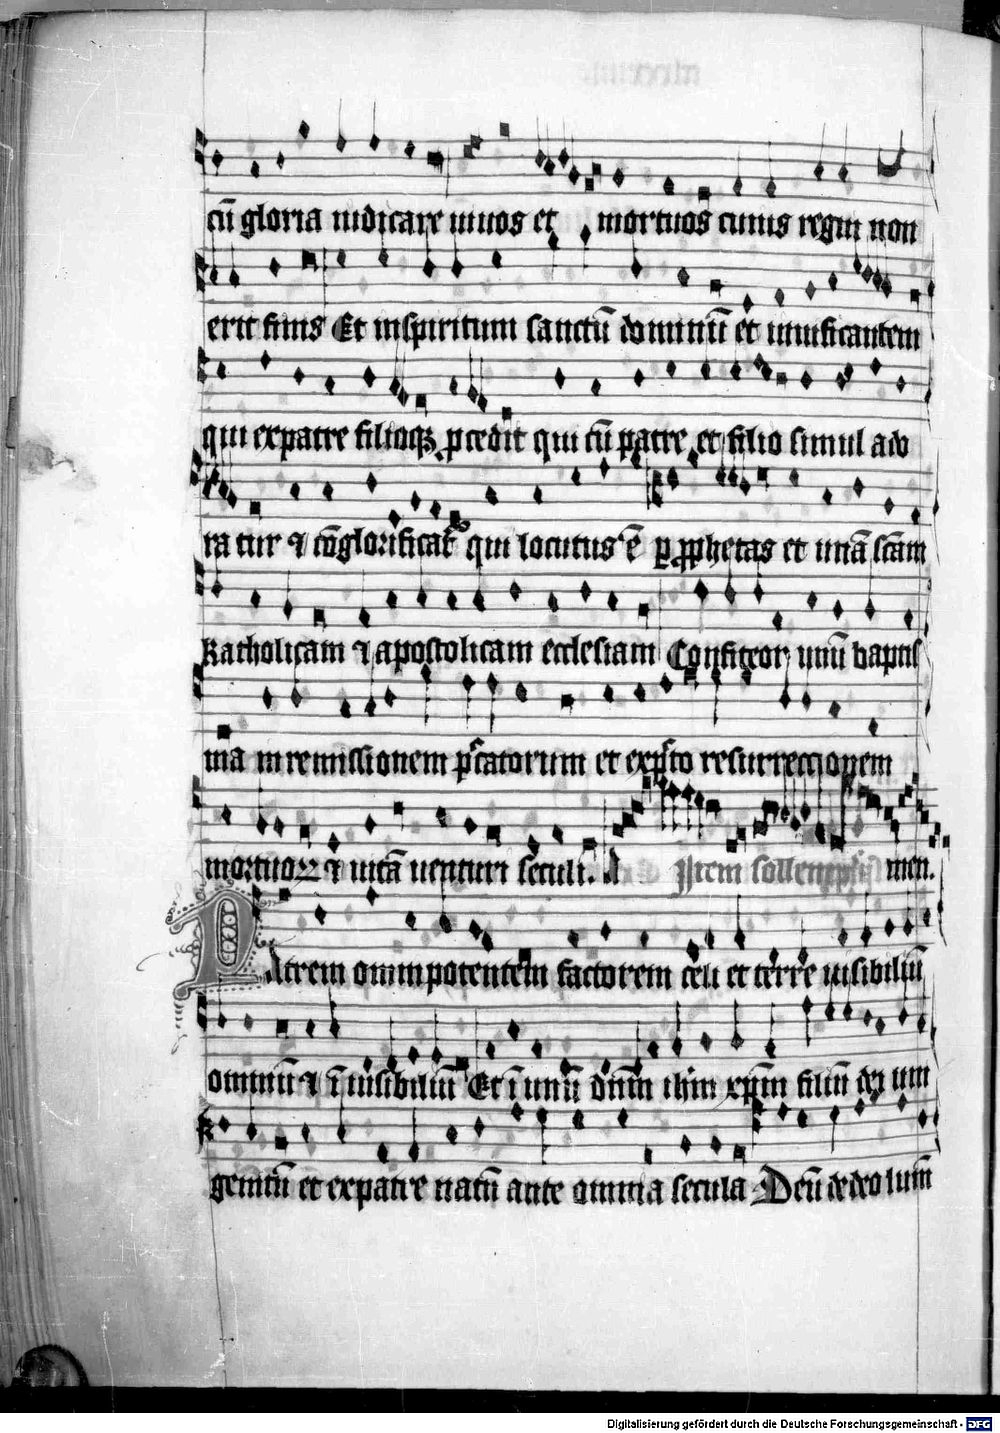 cū gloria iudicare uiuos et mortuos cuius regni non
erit finis Et inspiritum sanctū dominū et uiuificantem
qui expatre filioqꝫ ꝓcedit qui cū patre et filio simul ado
ra tur ⁊ cōglorificat᷑ qui locutus ē ꝑ ꝓphetas et unā scām
katholicam ⁊ apostolicam ecclesiam Confiteor unū baptis
ma in remissionem pccatorum et expcto resurreccionem
mortuoꝝ ⁊ uitā uenturi seculi. A Item sollempnis men.
PAtrem omnipotentem factorem celi et terre uisibiliū
omniū ⁊ īuisibiliū Et ī unū dn̄m ihm xp̄m filiū dei uni
genitū et expatre natū ante omnia secula Deū de deo lum̄
Digitalisierung gefördert durch die Deutsche Forschungsgemeinschaft - DFG